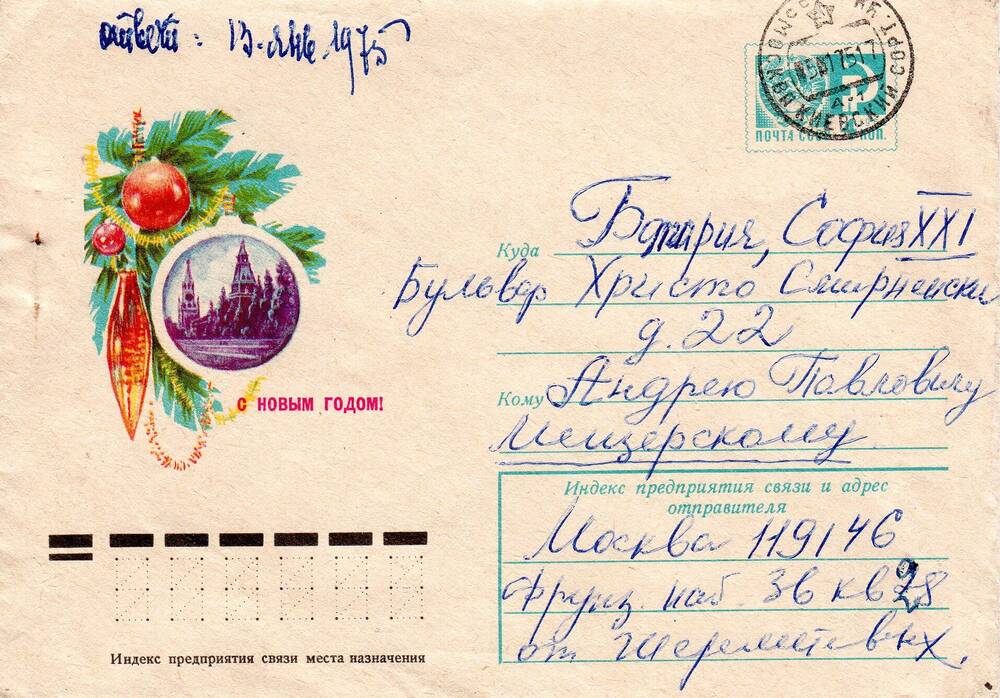 ответ: 13 янв 1975
ПОЧТА СССР КОП.
КИЕВСКИЙ
Куда Болгария, София XXI
Бульвар Христо Смирненски
д. 22
Кому Андрею Павловичу
Мещерскому
С НОВЫМ ГОДОМ!
Индекс предприятия связи и адрес
отправителя
Москва 119146
Фрунз. наб. 38 кв 28
от Шереметевых.
Индекс предприятия связи места назначения